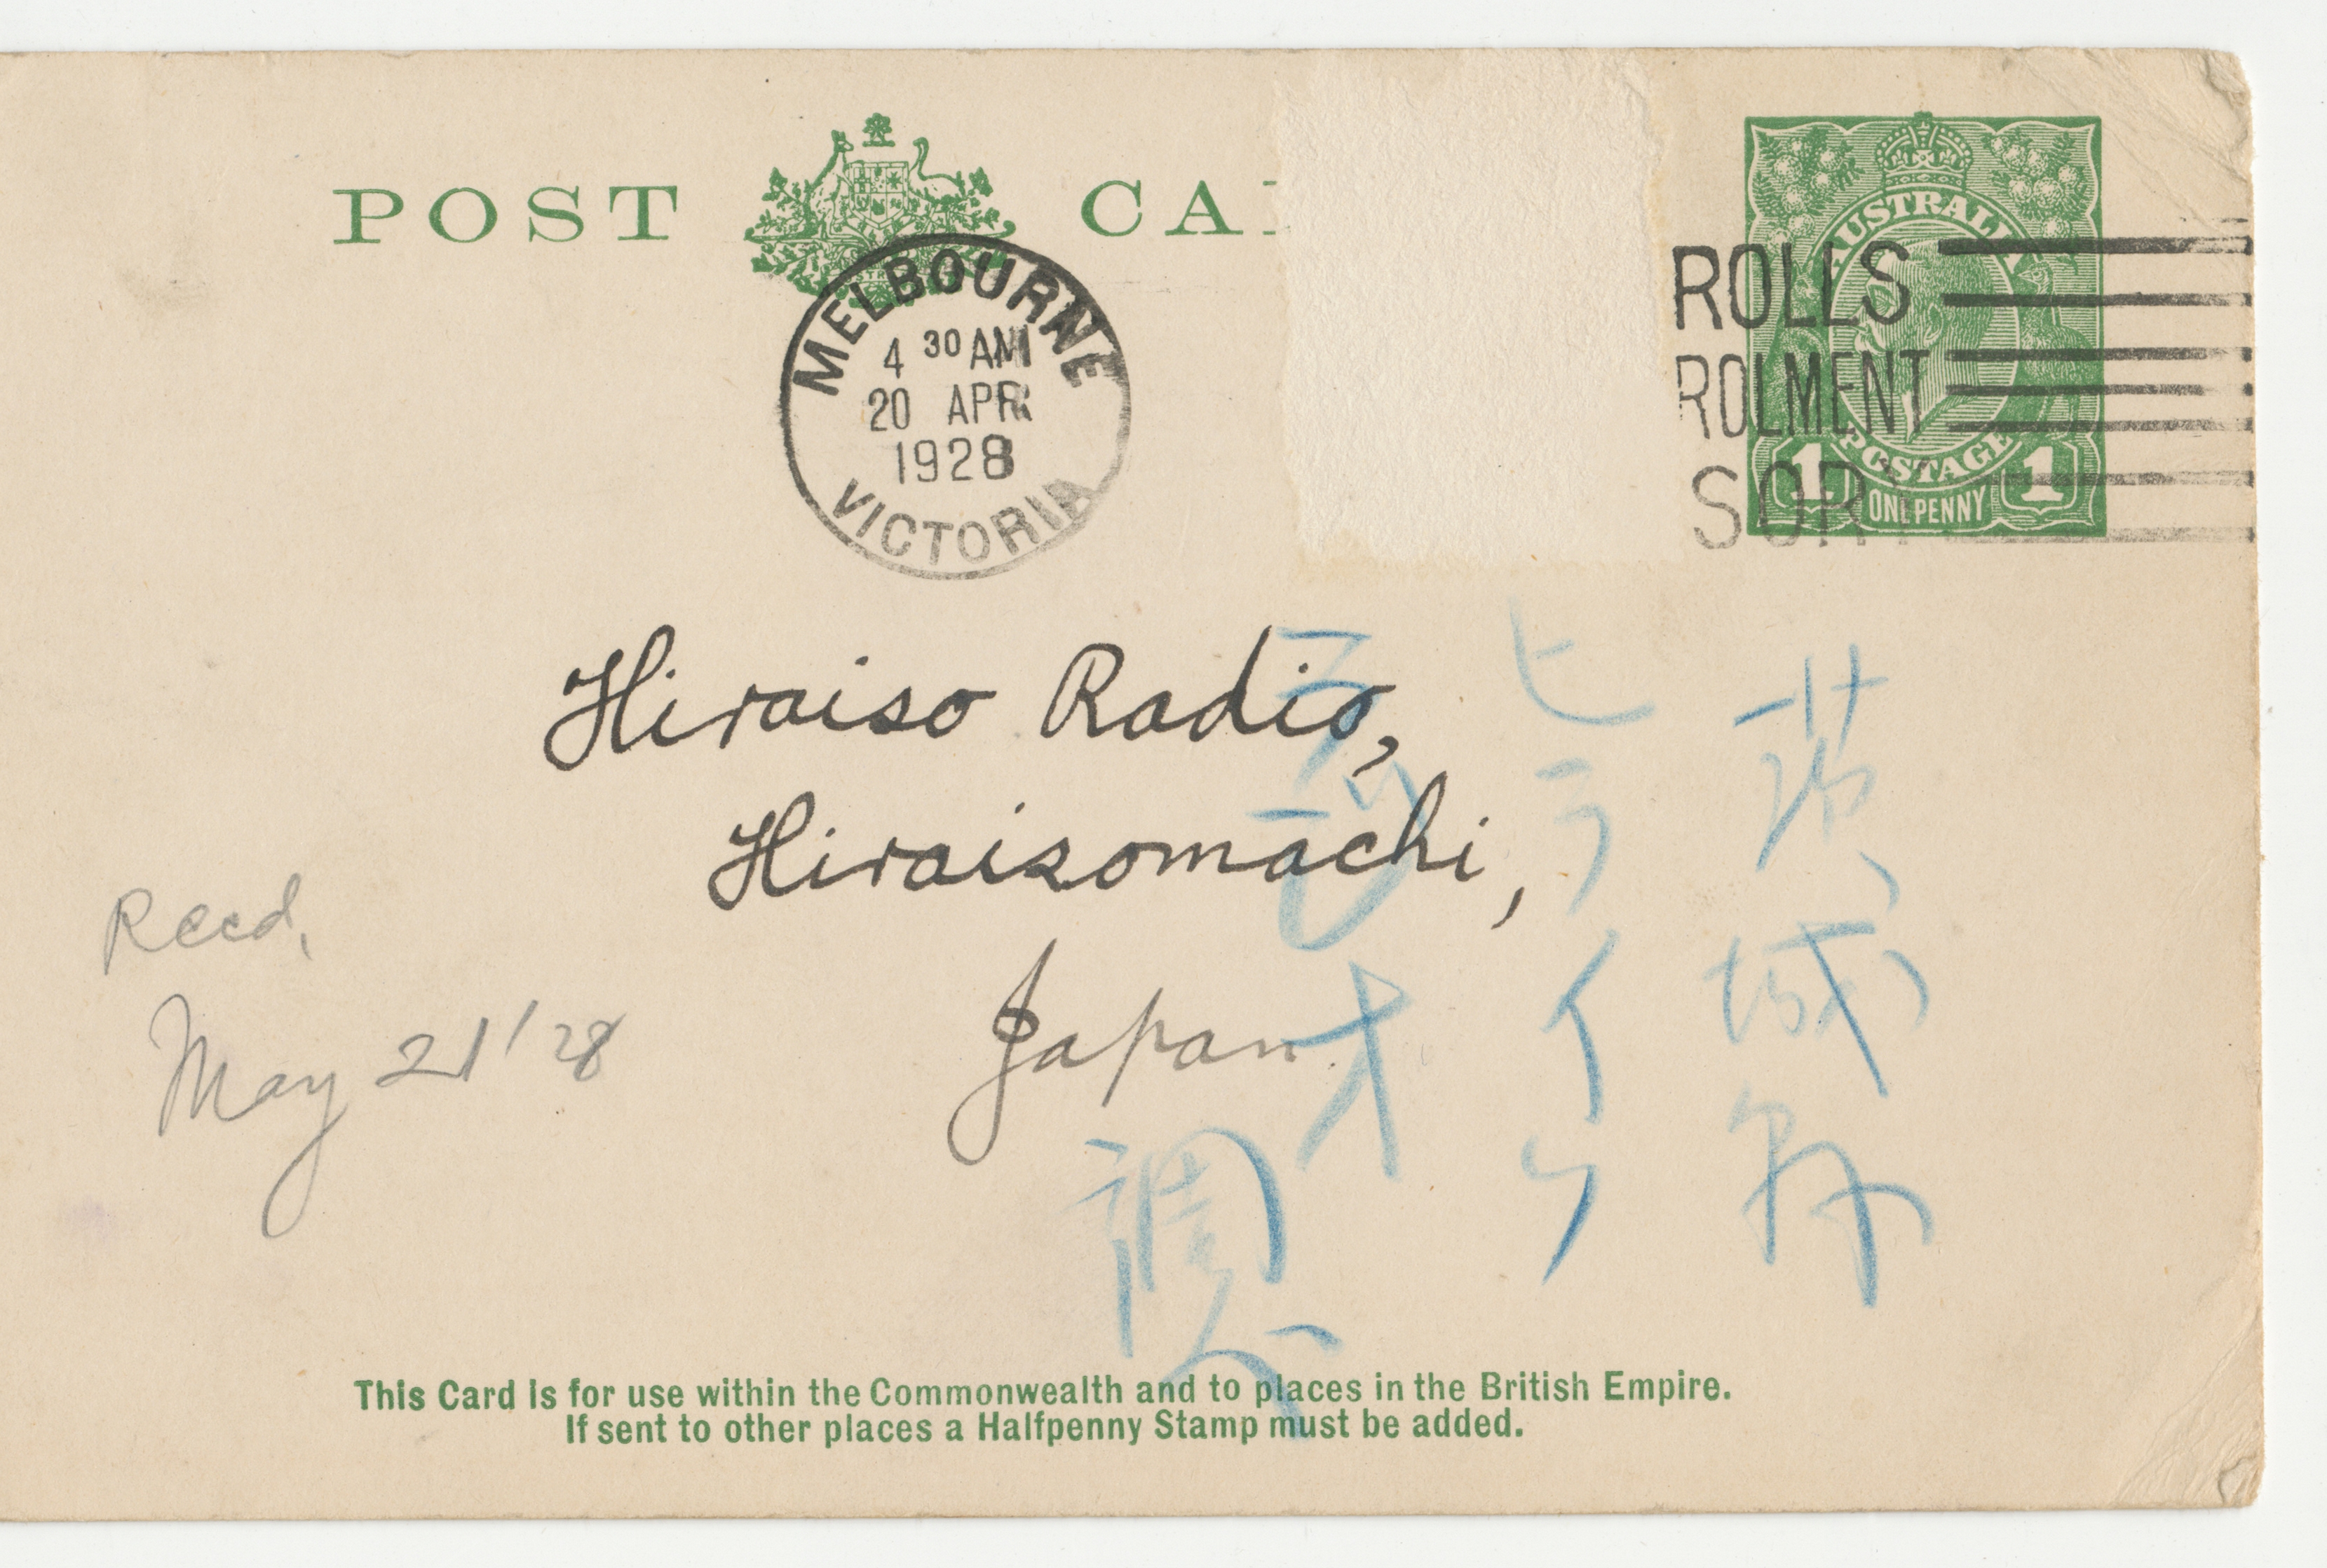 POST CA
AUSTRALIA
POSTAGE
1 ONE PENNY 1
MELBOURNE
4 30 AM
20 APR
1928
VICTORIA
ROLLS
ROLMENT
SORY
Hiraiso Radio,
Hiraisomachi,
Japan.
Recd,
May 21 '28
茨城縣
ヒライソ
調
This Card is for use within the Commonwealth and to places in the British Empire.
If sent to other places a Halfpenny Stamp must be added.